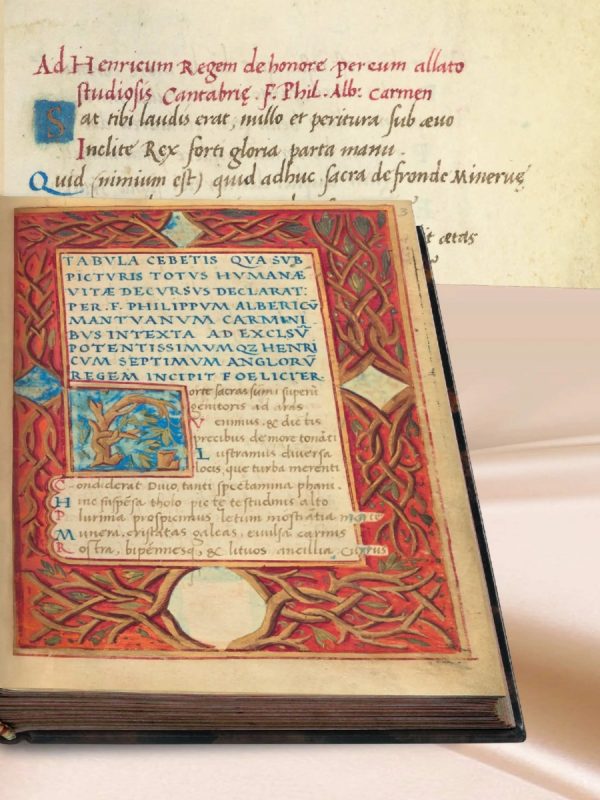 Ad Henricum Regem de honore per eum allato
studiosis Cantabrię. F. Phil. Alb: Carmen
Sat tibi laudis erat, nullo et peritura sub æuo
Inclite Rex forti gloria parta manu.
Quid (nimium est) quid adhuc sacra de fronde Mineruę
it ætas
3
TABULA CEBETIS QUA SUB
PICTURIS TOTUS HUMANÆ
VITÆ DECURSUS DECLARAT:
PER. F. PHILIPPUM ALBERICŪ
MANTUANUM CARMINI
BUS INTEXTA AD EXCLSŪ
POTENTISSIMUMQZ HENRI
CUM SEPTIMUM ANGLORŪ
REGEM INCIPIT FOELICITER
Forte sacras summi superū
genitoris ad aras
Venimus. & dictis
precibus de more tonāti
Lustramus diuersa
locis, que turba merenti
Condiderat Diuo, tanti spectamina phani.
Hinc suspēsa tholo pictę testudinis alto
Plurima prospicimus, letum mostrātia
Munera, cristatas galeas, euulsa carinis
Rostra, bipēnnesq, & lituos ancillia currus